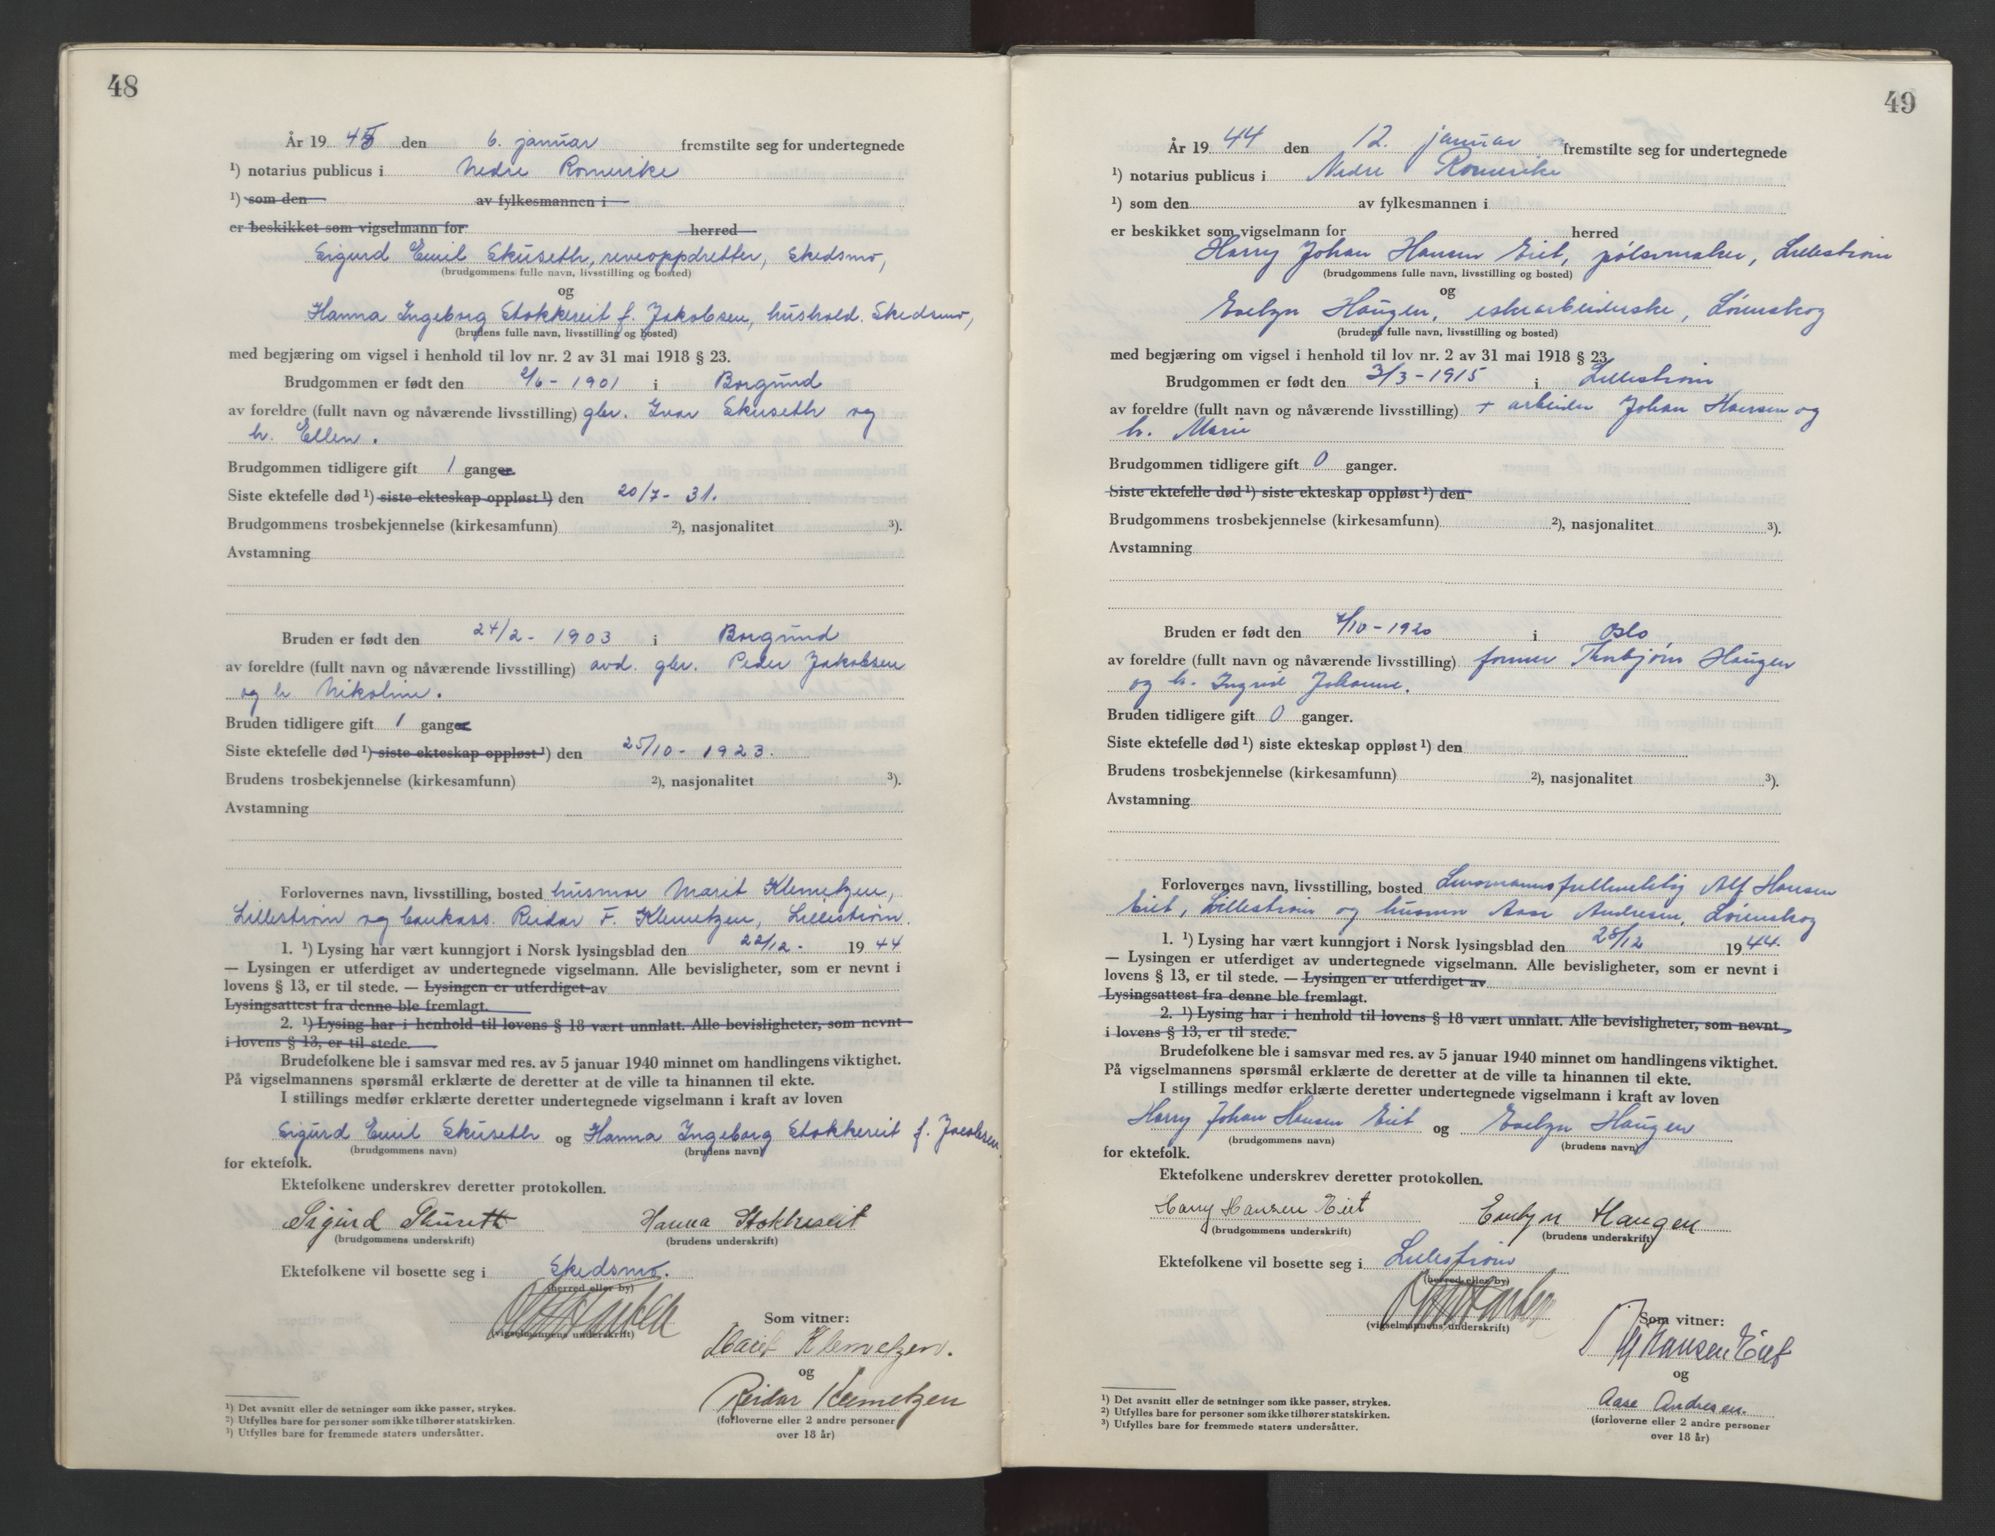 48
År 19 45 den 6. januar fremstilte seg for undertegnede
¹) notarius publicus i Nedre Romerike
¹) som den av fylkesmannen i
er beskikket som vigselmann for herred
Sigurd Emil Skuseth, reveoppdretter, Skedsmo,
(brudgommens fulle navn, livsstilling og bosted)
og
Hanna Ingeborg Stokkereit f. Jakobsen, hushold. Skedsmo,
(brudens fulle navn, livsstilling og bosted)
med begjæring om vigsel i henhold til lov nr. 2 av 31 mai 1918 § 23.
Brudgommen er født den 2/6 - 1901 i Borgund
av foreldre (fullt navn og nåværende livsstilling) gbr. Ivar Skuseth og
h. Ellen.
Brudgommen tidligere gift 1 ganger
Siste ektefelle død ¹) siste ekteskap oppløst ¹) den 20/7 - 31.
Brudgommens trosbekjennelse (kirkesamfunn) ²), nasjonalitet ³).
Avstamning
Bruden er født den 24/2 - 1903 i Borgund
av foreldre (fullt navn og nåværende livsstilling) avd. gbr. Peder Jakobsen
og h. Nikoline.
Bruden tidligere gift 1 ganger
Siste ektefelle død ¹) siste ekteskap oppløst ¹) den 25/10 - 1923.
Brudens trosbekjennelse (kirkesamfunn) ²), nasjonalitet ³).
Avstamning
Forlovernes navn, livsstilling, bosted husmor Marit Klemetzen,
Lillestrøm og bankass. Reidar F. Klemetzen, Lillestrøm.
1. ¹) Lysing har vært kunngjort i Norsk lysingsblad den 22/12 - 19 44
— Lysingen er utferdiget av undertegnede vigselmann. Alle bevisligheter, som er nevnt i
lovens § 13, er til stede. — Lysingen er utferdiget av
Lysingsattest fra denne ble fremlagt.
2. ¹) Lysing har i henhold til lovens § 18 vært unnlatt. Alle bevisligheter, som nevnt
i lovens § 13, er til stede.
Brudefolkene ble i samsvar med res. av 5 januar 1940 minnet om handlingens viktighet.
På vigselmannens spørsmål erklærte de deretter at de ville ta hinannen til ekte.
I stillings medfør erklærte deretter undertegnede vigselmann i kraft av loven
Sigurd Emil Skuseth og Hanna Ingeborg Stokkereit f. Jacobsen
(brudgommens navn) (brudens navn)
for ektefolk.
Ektefolkene underskrev deretter protokollen.
Sigurd Skuseth Hanna Stokkereit
(brudgommens underskrift) (brudens underskrift)
Ektefolkene vil bosette seg i Skedsmo.
(herred eller by)
(vigselmannens underskrift)
Som vitner:
Marit Klemetzen.
og
Reidar Klemetzen
(forloverne eller 2 andre personer
over 18 år)
¹) Det avsnitt eller de setninger som ikke passer, strykes.
²) Utfylles bare for personer som ikke tilhører statskirken.
³) Utfylles bare for fremmede staters undersåtter.
49
År 19 44 den 12. januar fremstilte seg for undertegnede
¹) notarius publicus i Nedre Romerike
¹) som den av fylkesmannen i
er beskikket som vigselmann for herred
Harry Johan Hansen Eiet, pølsemaker, Lillestrøm
(brudgommens fulle navn, livsstilling og bosted)
og
Evelyn Haugen, eskearbeiderske, Lørenskog
(brudens fulle navn, livsstilling og bosted)
med begjæring om vigsel i henhold til lov nr. 2 av 31 mai 1918 § 23
Brudgommen er født den 3/3 - 1915 i Lillestrøm
av foreldre (fullt navn og nåværende livsstilling) + arbeider Johan Hansen og
h. Marie
Brudgommen tidligere gift 0 ganger.
Siste ektefelle død ¹) siste ekteskap oppløst ¹) den
Brudgommens trosbekjennelse (kirkesamfunn) ²), nasjonalitet ³).
Avstamning
Bruden er født den /10 - 1920 i Oslo
av foreldre (fullt navn og nåværende livsstilling) former Thorbjørn Haugen
og h. Ingrid Johanne.
Bruden tidligere gift 0 ganger.
Siste ektefelle død ¹) siste ekteskap oppløst ¹) den
Brudens trosbekjennelse (kirkesamfunn) ²), nasjonalitet ³).
Avstamning
Forlovernes navn, livsstilling, bosted Lensmannsfullmektig Alf Hansen
Eiet, Lillestrøm og husmor Aase Andresen, Lørenskog
1. ¹) Lysing har vært kunngjort i Norsk lysingsblad den 28/12 19 44.
— Lysingen er utferdiget av undertegnede vigselmann. Alle bevisligheter, som er nevnt i
lovens § 13, er til stede. — Lysingen er utferdiget av
Lysingsattest fra denne ble fremlagt.
2. ¹) Lysing har i henhold til lovens § 18 vært unnlatt. Alle bevisligheter, som nevnt
i lovens § 13, er til stede.
Brudefolkene ble i samsvar med res. av 5 januar 1940 minnet om handlingens viktighet.
På vigselmannens spørsmål erklærte de deretter at de ville ta hinannen til ekte.
I stillings medfør erklærte deretter undertegnede vigselmann i kraft av loven
Harry Johan Hansen Eiet og Evelyn Haugen
(brudgommens navn) (brudens navn)
for ektefolk.
Ektefolkene underskrev deretter protokollen.
Harry Hansen Eiet Evelyn Haugen
(brudgommens underskrift) (brudens underskrift)
Ektefolkene vil bosette seg i Lillestrøm
(herred eller by)
(vigselmannens underskrift)
Som vitner:
Hansen Eiet
og
Aase Andresen.
(forloverne eller 2 andre personer
over 18 år)
¹) Det avsnitt eller de setninger som ikke passer, strykes.
²) Utfylles bare for personer som ikke tilhører statskirken.
³) Utfylles bare for fremmede staters undersåtter.